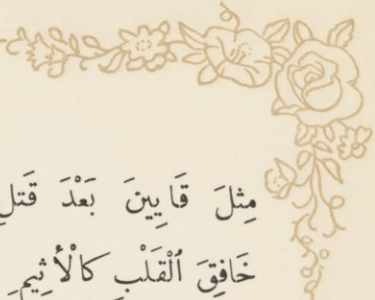 مِثلَ قَايِينَ بَعْدَ قَتلِ
خَافِقَ ٱلْقَلْبِ كالْأَثِيمِ